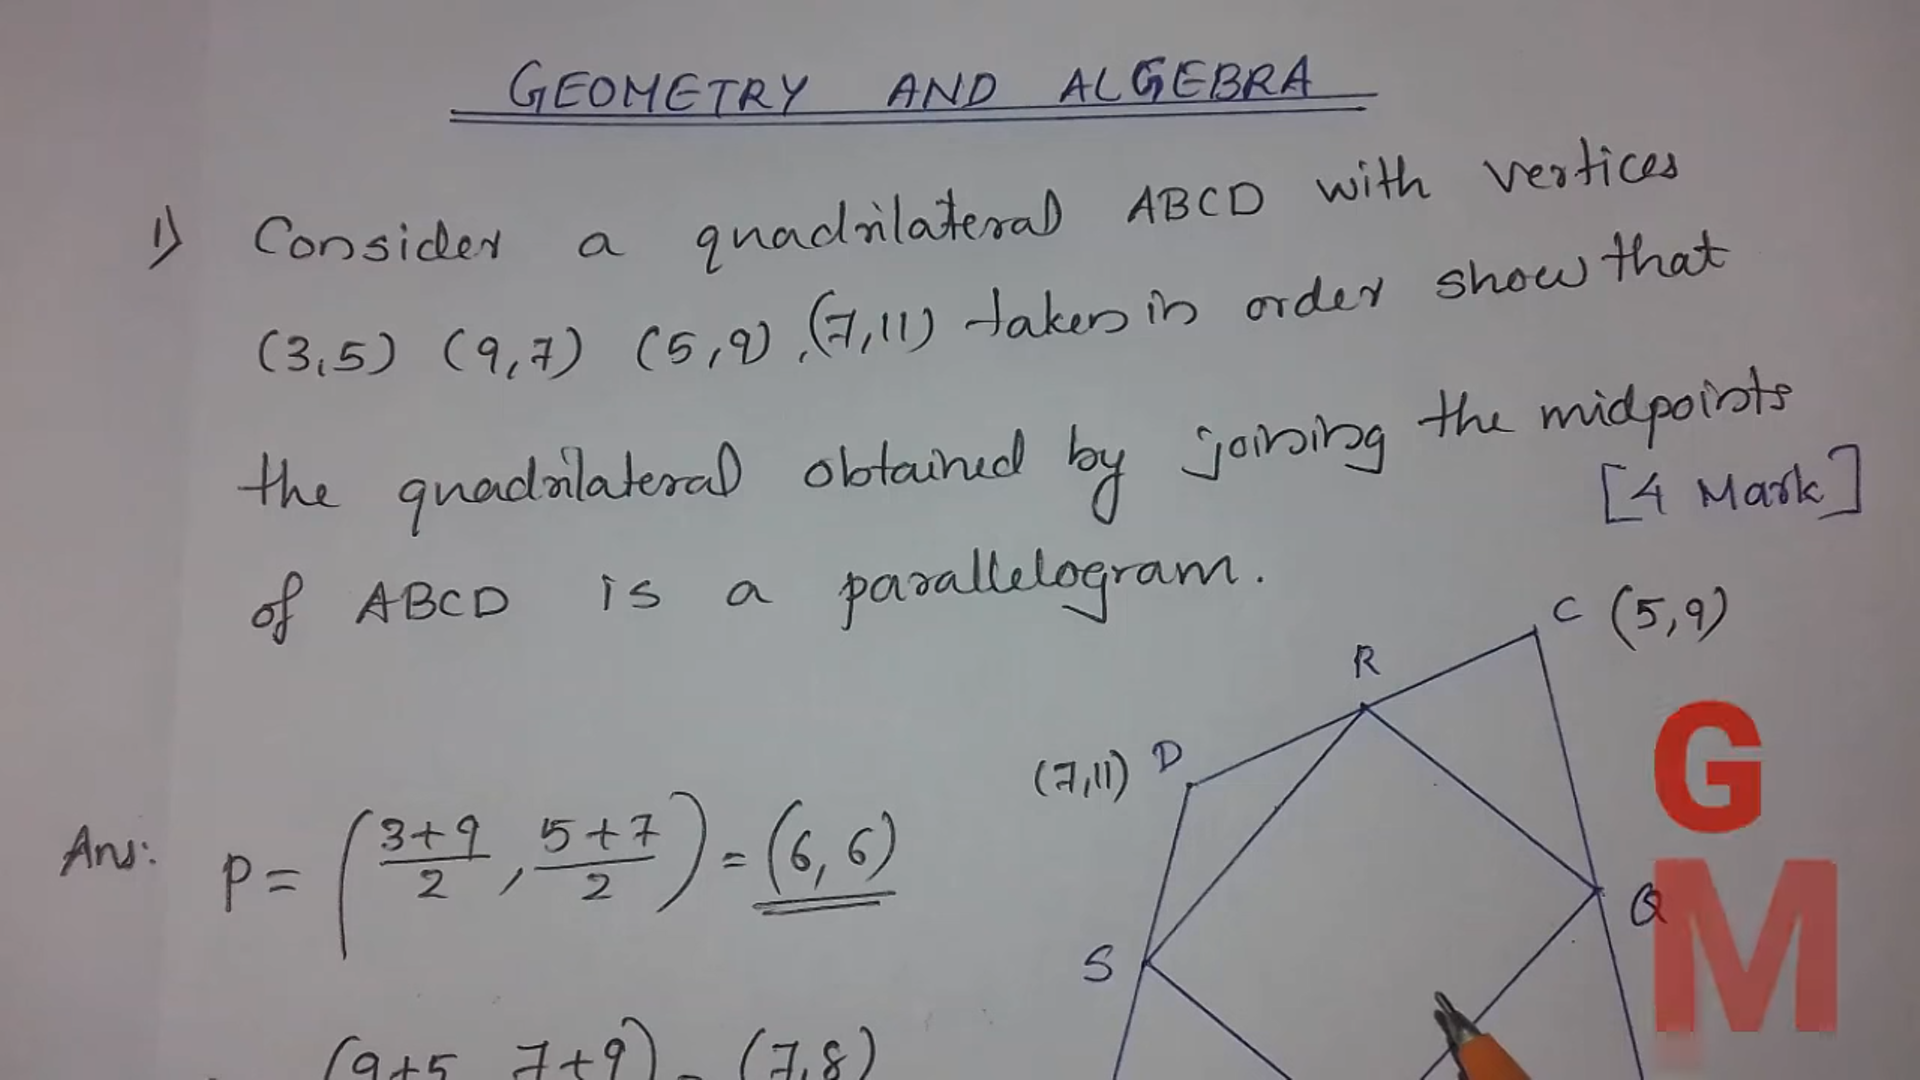 GEOMETRY AND ALGEBRA
1) Consider a quadrilateral ABCD with vertices
(3,5) (9,7) (5,9), (7,11) taken in order show that
the quadrilateral obtained by joining the midpoints
[4 Mark]
of ABCD is a parallelogram.
C (5,9)
R
(7,11) D
G
Ans: P = (3+9/2, 5+7/2) = (6,6)
Q
M
S
(9+5 7+9) = (7,8)